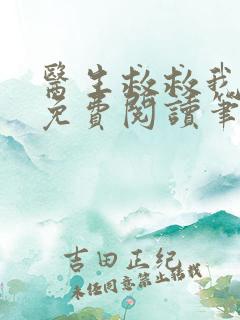 醫生救救我
免費閱讀筆
吉田正纪
未经同意禁止转载